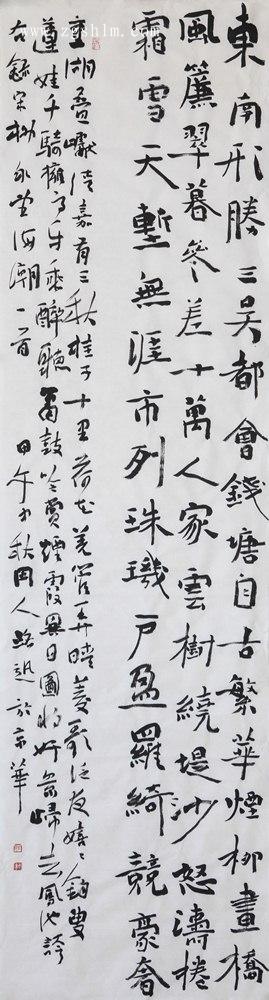 東南形勝三吳都會錢塘自古繁華煙柳畫橋
風簾翠暮參差十萬人家雲樹繞堤沙怒濤捲
霜雪天塹無涯市列珠璣戶盈羅綺競豪奢
重湖疊巘清嘉有三秋桂子十里荷花羌管弄晴菱歌泛夜嬉嬉釣叟
蓮娃千騎擁高牙乘醉聽簫鼓吟賞煙霞異日圖將好景歸去鳳池誇
右錄宋柳永望海潮一首 甲午秋 於京華